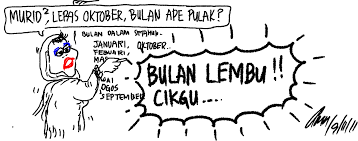 MURID² LEPAS OKTOBER, BULAN APE PULAK?
BULAN DALAM SETAHUN..
JANUARI,
FEBUARI,
MAC
OGOS
SEPTEMBER
OKTOBER..
BULAN LEMBU!!
CIKGU....